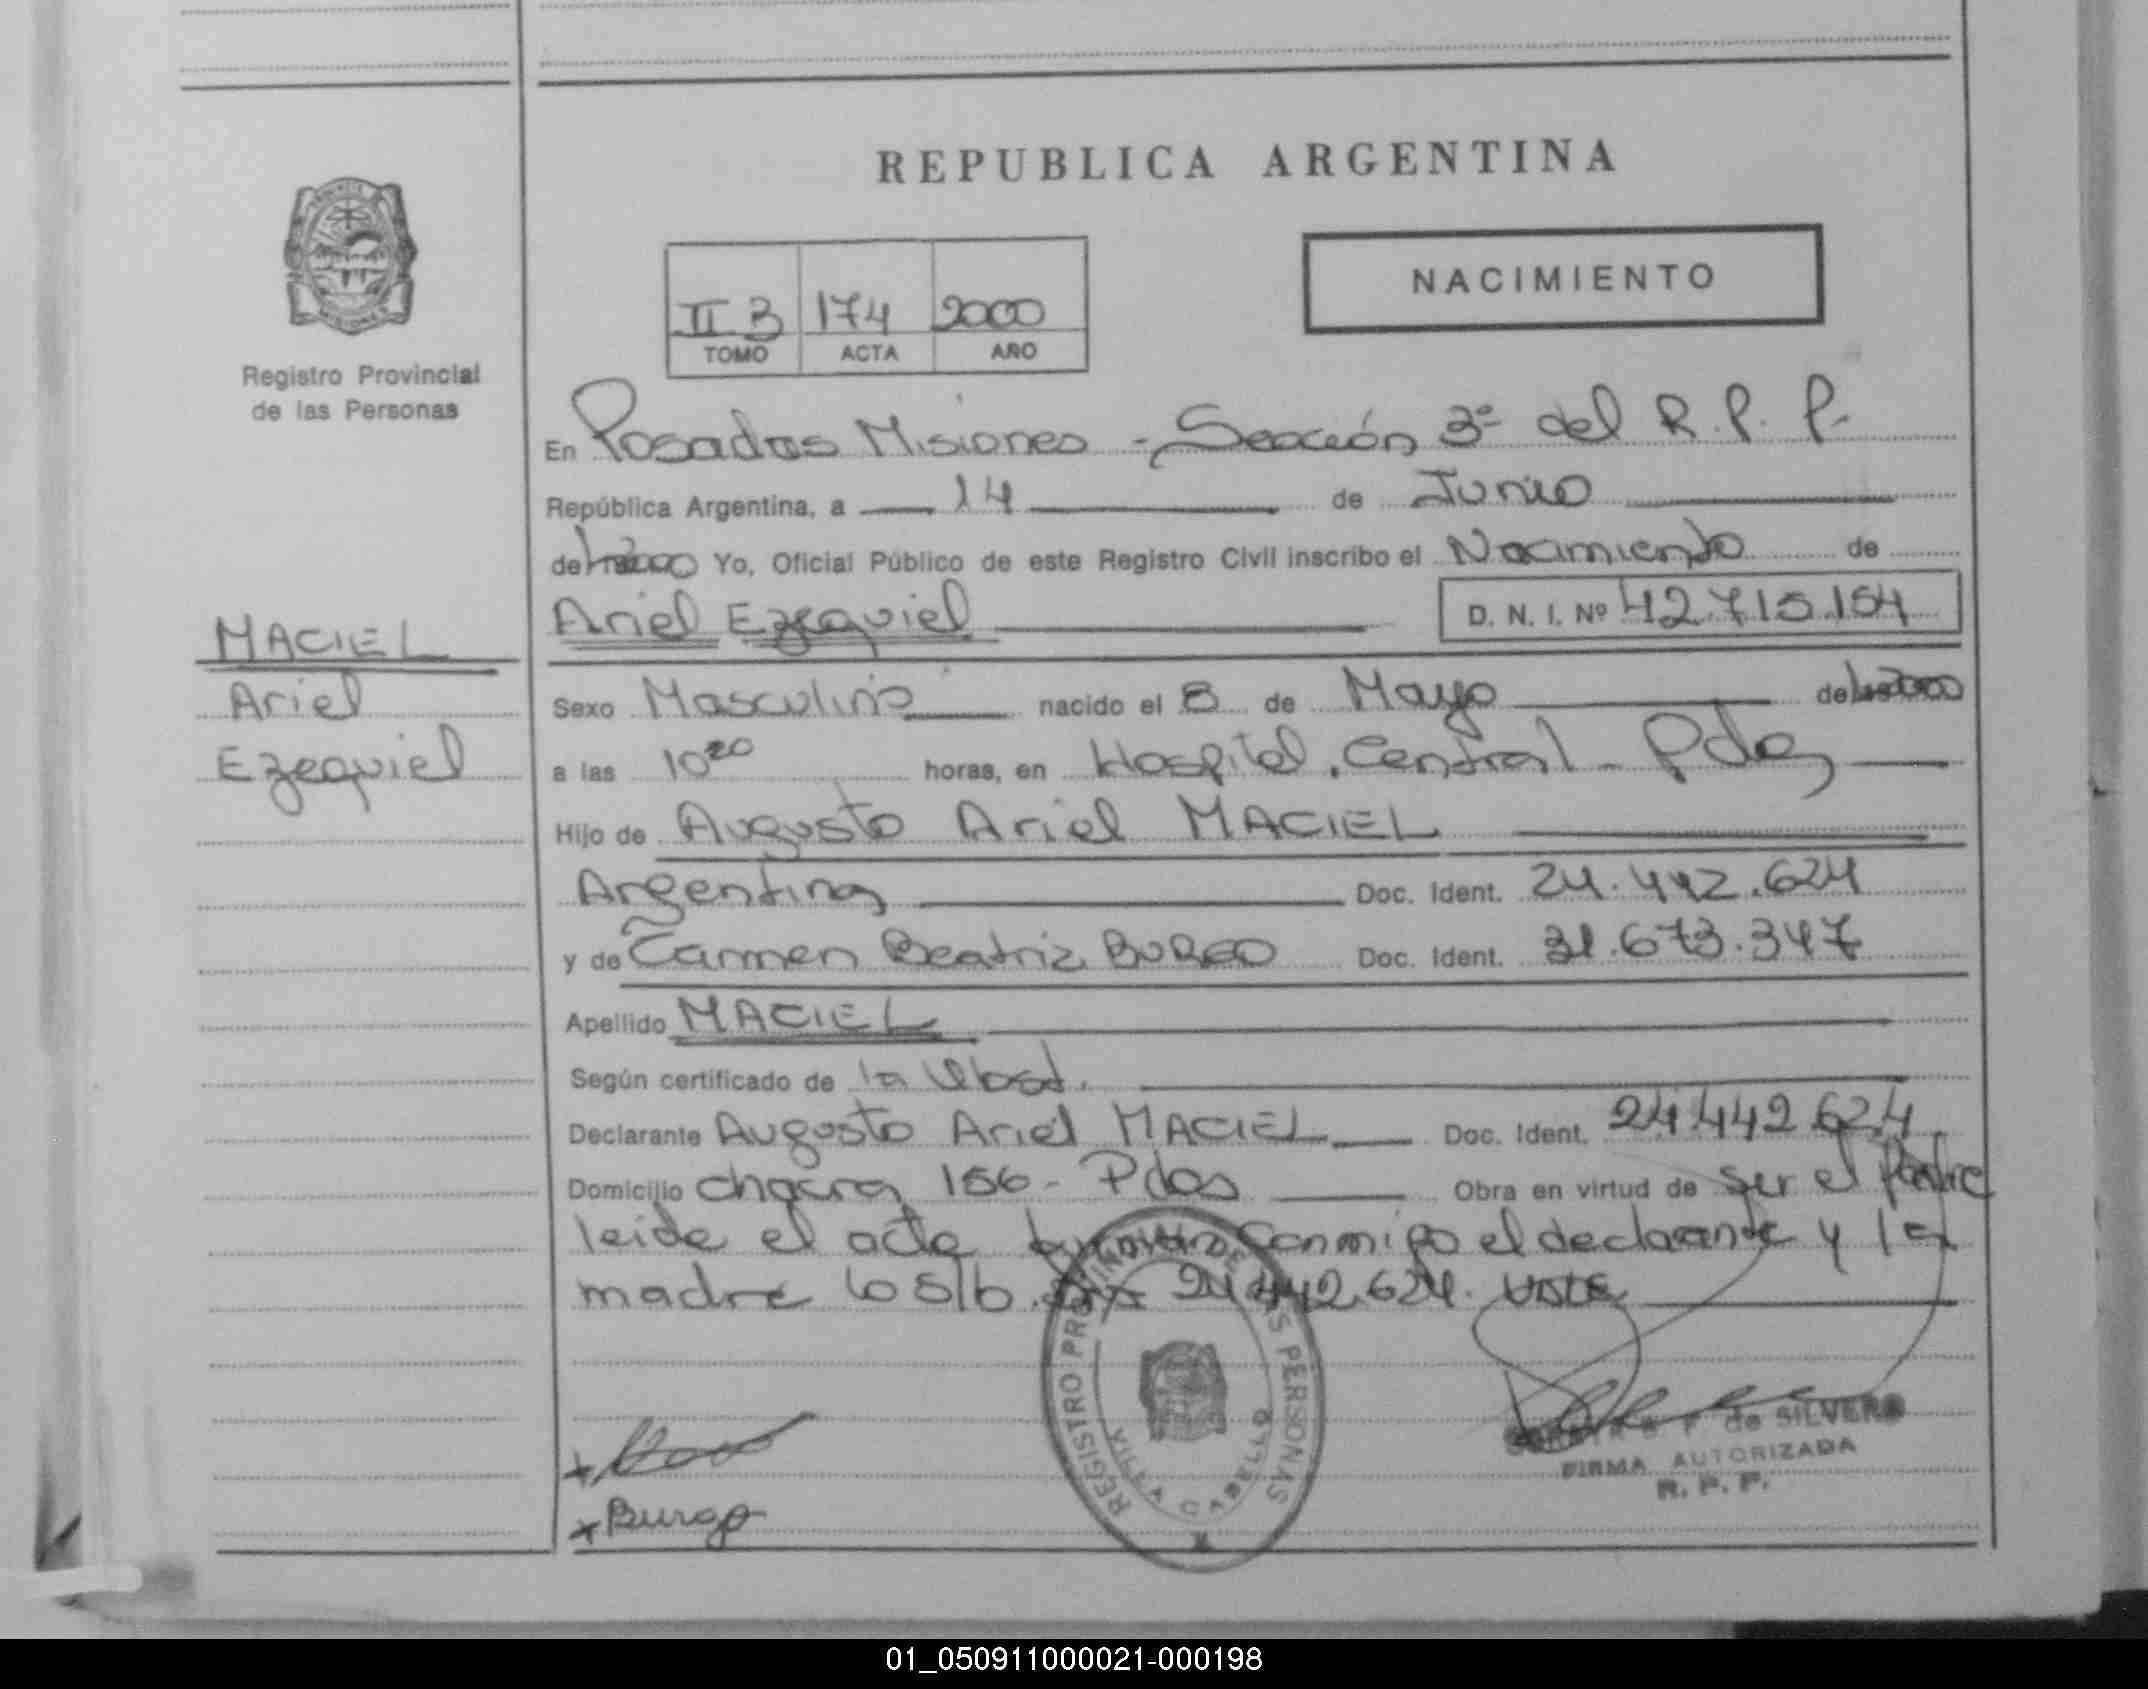 REPUBLICA ARGENTINA
NACIMIENTO
II B 174 2000
TOMO ACTA AÑO
Registro Provincial
de las Personas
En Posadas Misiones - Sección 3ª del R. P. P.
República Argentina, a 14 de Junio
de 2000 Yo, Oficial Público de este Registro Civil inscribo el Nacimiento de
Ariel Ezequiel D. N. I. Nº 42.715.154
MACIEL
Ariel
Ezequiel
Sexo Masculino nacido el 8 de Mayo de 2000
a las 10 20 horas, en Hospital Central - Pdas
Hijo de Augusto Ariel MACIEL
Argentina Doc. Ident. 24.442.624
y de Carmen Beatriz BURGO Doc. Ident. 31.673.347
Apellido MACIEL
Según certificado de la Obst.
Declarante Augusto Ariel MACIEL Doc. Ident. 24.442.624
Domicilio chacra 156 - Pdas Obra en virtud de ser el padre
leida el acta firman conmigo el declarante y la
madre lo s/b 24.442.624. VALE
REGISTRO PROVINCIAL DE LAS PERSONAS
VILLA CABELLO
de SILVERO
FIRMA AUTORIZADA
R. P. P.
Burgo
01_050911000021-000198